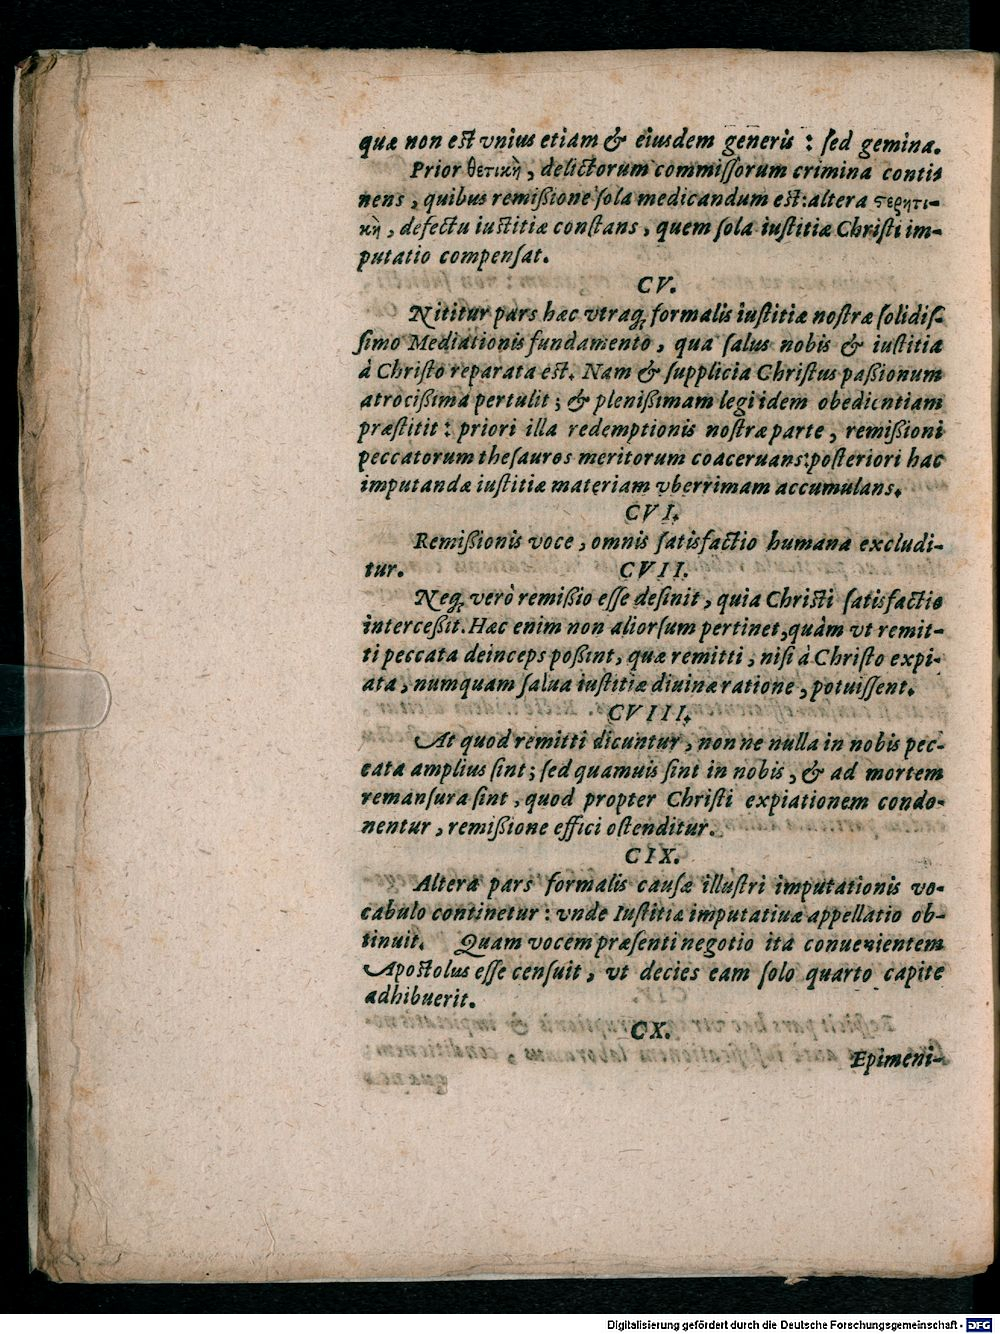 quæ non est vnius etiam & eiusdem generis : sed gemina.
Prior θετικὴ, delictorum commissorum crimina conti-
nens, quibus remißione sola medicandum est: altera στερητι-
κὴ, defectu iustitiæ constans, quem sola iustitiæ Christi im-
putatio compensat.
CV.
Nititur pars hæc vtraq; formalis iustitiæ nostræ solidis-
simo Mediationis fundamento, qua salus nobis & iustitia
à Christo reparata est. Nam & supplicia Christus paßionum
atrocißima pertulit; & plenißimam legi idem obedientiam
præstitit : priori illa redemptionis nostræ parte, remißioni
peccatorum thesauros meritorum coaceruans: posteriori hac
imputandæ iustitiæ materiam vberrimam accumulans.
CVI.
Remißionis voce, omnis satisfactio humana excludi-
tur. CVII.
Neq; verò remißio esse desinit, quia Christi satisfactio
interceßit. Hæc enim non aliorsum pertinet, quàm vt remit-
ti peccata deinceps poßint, quæ remitti, nisi à Christo expi-
ata, numquam salua iustitiæ diuinæ ratione, potuissent.
CVIII.
At quod remitti dicuntur, non ne nulla in nobis pec-
cata amplius sint; sed quamuis sint in nobis, & ad mortem
remansura sint, quod propter Christi expiationem condo-
nentur, remißione effici ostenditur.
CIX.
Altera pars formalis causæ illustri imputationis vo-
cabulo continetur : vnde Iustitiæ imputatiuæ appellatio ob-
tinuit. Quam vocem præsenti negotio ita conuenientem
Apostolus esse censuit, vt decies eam solo quarto capite
adhibuerit.
CX.
Epimeni-
Digitalisierung gefördert durch die Deutsche Forschungsgemeinschaft - DFG